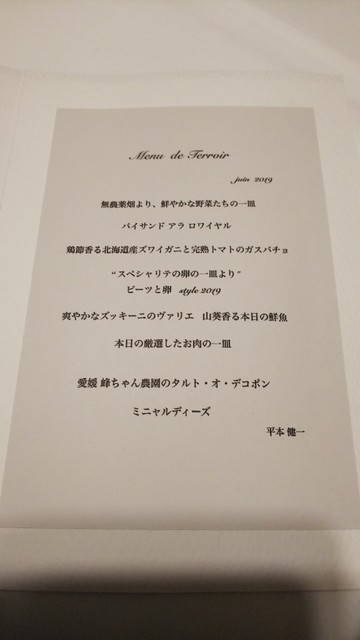 Menu de Terroir
juin 2019
無農薬畑より、鮮やかな野菜たちの一皿
バイサンド アラ ロワイヤル
鶏節香る北海道産ズワイガニと完熟トマトのガスパチョ
“スペシャリテの卵の一皿より”
ビーツと卵 style 2019
爽やかなズッキーニのヴァリエ 山葵香る本日の鮮魚
本日の厳選したお肉の一皿
愛媛 峰ちゃん農園のタルト・オ・デコポン
ミニャルディーズ
平本 健一